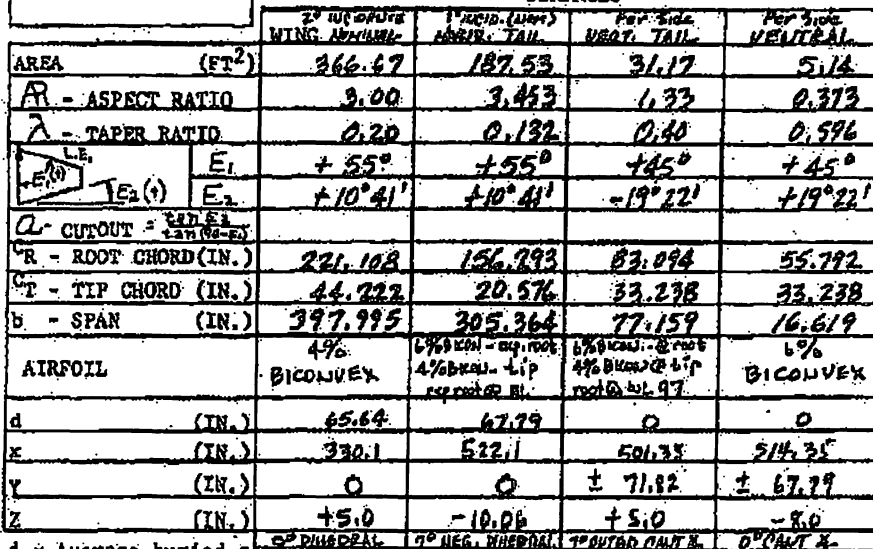 2° INCIDENCE 1° INCID. (NEG) Per Side Per Side
WING NOMINAL HORIZ. TAIL VERT. TAIL VENTRAL
AREA (FT²) 366.67 187.53 31.17 5.14
AR - ASPECT RATIO 3.00 3.453 1.33 0.373
λ - TAPER RATIO 0.20 0.132 0.40 0.596
L.E. E₁(+) E₁ +55° +55° +45° +45°
E₂(+) E₂ +10°41' +10°41' -19°22' +19°22'
a - CUTOUT = tan E₂ / tan(90-E₁)
CR - ROOT CHORD (IN.) 221.108 156.293 83.094 55.792
CT - TIP CHORD (IN.) 44.222 20.576 33.238 33.238
b - SPAN (IN.) 397.995 305.364 77.159 16.619
AIRFOIL 4% BICONVEX 6% BICON - exp. root 4% BICON - tip exp root @ BL 6% BICON - @ root 4% BICON @ tip root @ WL 97 6% BICONVEX
d (IN.) 65.64 67.79 0 0
x (IN.) 330.1 522.1 501.35 514.35
Y (IN.) 0 0 ± 71.82 ± 67.79
Z (IN.) +5.0 -10.06 +5.0 -8.0
0° DIHEDRAL 7° NEG. DIHEDRAL 7° OUTBD CANT 0° CANT
d = Average buried